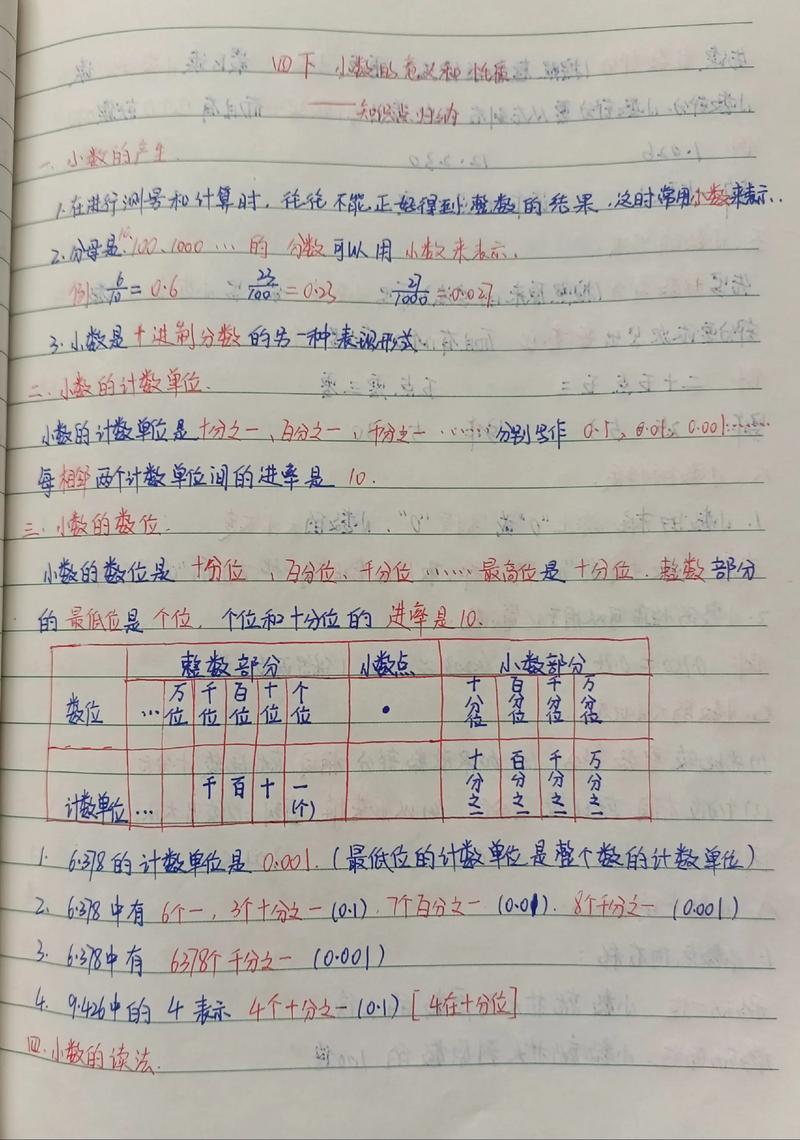 四下 小数的意义和性质
——知识点归纳
一、小数的产生.
1.在进行测量和计算时，往往不能正好得到整数的结果，这时常用小数来表示.
2.分母是10、100、1000…的分数可以用小数来表示.
例:6/10=0.6 23/100=0.23 27/1000=0.027
3.小数是十进制分数的另一种表现形式.
二、小数的计数单位.
小数的计数单位是十分之一、百分之一、千分之一……分别写作0.1、0.01、0.001……
每相邻两个计数单位间的进率是10.
三、小数的数位.
小数的数位是十分位、百分位、千分位……最高位是十分位.整数部分
的最低位是个位,个位和十分位的进率是10.
整数部分 小数点 小数部分
数位 … 万位 千位 百位 十位 个位 · 十分位 百分位 千分位 万分位
计数单位 … 千 百 十 一(个) 十分之一 百分之一 千分之一 万分之一
1. 6.378的计数单位是0.001.(最低位的计数单位是整个数的计数单位)
2. 6.378中有6个一,3个十分之一(0.1).7个百分之一(0.01).8个千分之一(0.001)
3. 6.378中有6378个千分之一(0.001)
4. 9.426中的4表示4个十分之一(0.1)[4在十分位]
四.小数的读法.